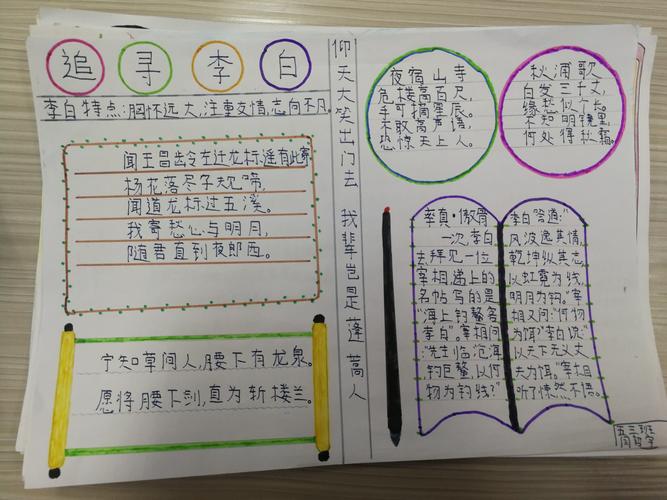 追寻李白
李白特点:胸怀远大,注重友情,志向不凡。
闻王昌龄左迁龙标遥有此寄
杨花落尽子规啼,
闻道龙标过五溪。
我寄愁心与明月,
随君直到夜郎西。
宁知草间人,腰下有龙泉。
愿将腰下剑,直为斩楼兰。
仰天大笑出门去 我辈岂是蓬蒿人
夜宿山寺
危楼高百尺,
手可摘星辰。
不敢高声语,
恐惊天上人。
秋浦歌
白发三千丈,
缘愁似个长。
不知明镜里,
何处得秋霜。
率真·傲骨
一次,李白
去拜见一位
宰相,递上的
名帖写的是
"海上钓鳌客
李白"。宰相问
:"先生临沧海,
钓巨鳌,以何
物为钓线?"
李白答道:"
风波逸其情,
乾坤纵其志,
以虹霓为线,
明月为钩。"宰
相又问:"何物
为饵?"李白说:"
以天下无义丈
夫为饵。"宰相
听了悚然不语。
五三班